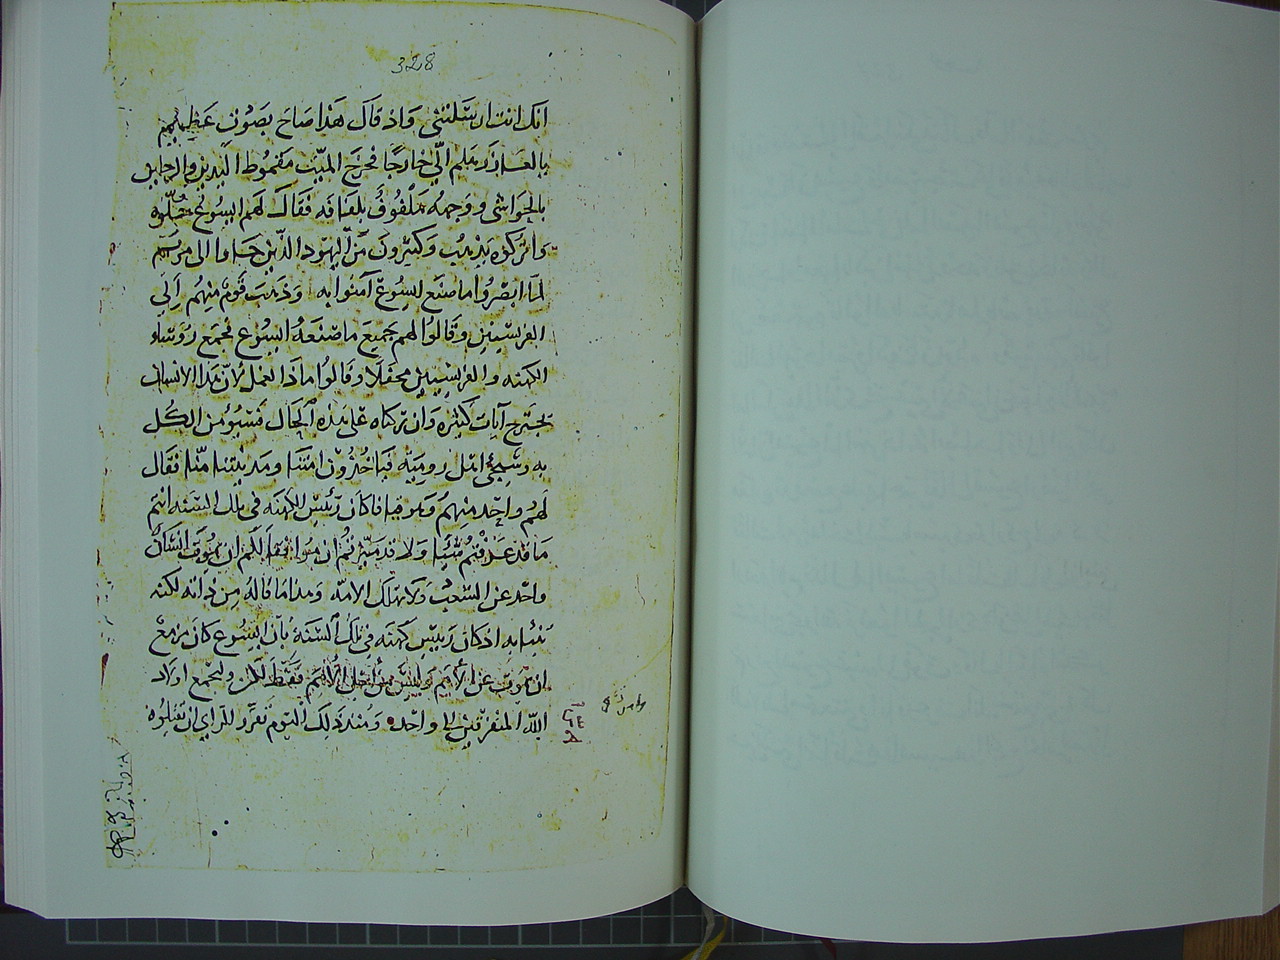 328
انك انت ارسلتنى واذ قال هذا صاح بصوت عظيم
يالعازر هلم الى خارجا فخرج الميت مقموط اليدين والرجلين
بالحواشى ووجهه ملفوف بلفافه فقال لهم اليسوع حلوه
واتركوه يذهب وكثيرون من اليهود الذين جاوا الى مريم
لما ابصروا ما صنع ليسوع آمنوا به وذهب قوم منهم إلى
الفريسيين وقالوا لهم جميع ما صنعه اليسوع فجمع روساء
الكهنه والفريسيين محفلا وقالوا ماذا نعمل لأن هذا الانسان
يجترح آيات كثيره وان تركناه على هذه الحال فسيؤمن الكل
به وسيجئ اهل روميه فياخذون امتنا ومدينتنا منا فقال
لهم واحد منهم وهو قيافا كان رئيس الكهنه فى تلك السنه انتم
ما قد عرفتم شيئا ولا قد ميزتم ان موافقا لكم ان يموت انسان
واحد عن الشعب ولا تهلك الامه وهذا ما قاله من ذاته لكنه
تنبا به اذ كان رييس كهنه فى تلك السنة بان اليسوع كان مزمع
ان يموت عن الأمم وليس من اجل الأمم فقط لكن وليجمع اولاد
الله المتفرقين الى واحد ومنذ ذلك اليوم تقرر للراي ان يقتلوه